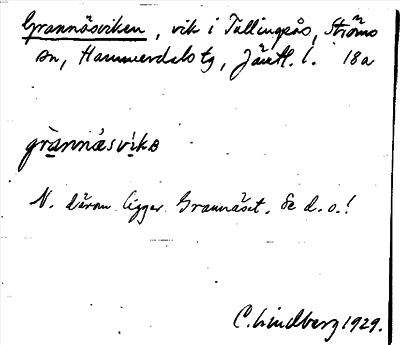 Grannäsviken, vik i Tullingsås, Ströms
sn, Hammerdals tg, Jämtl. l. 18a
grànnä́svìka
N. därom ligger Grannäset. Se d. o.!
C. Lindberg 1929.